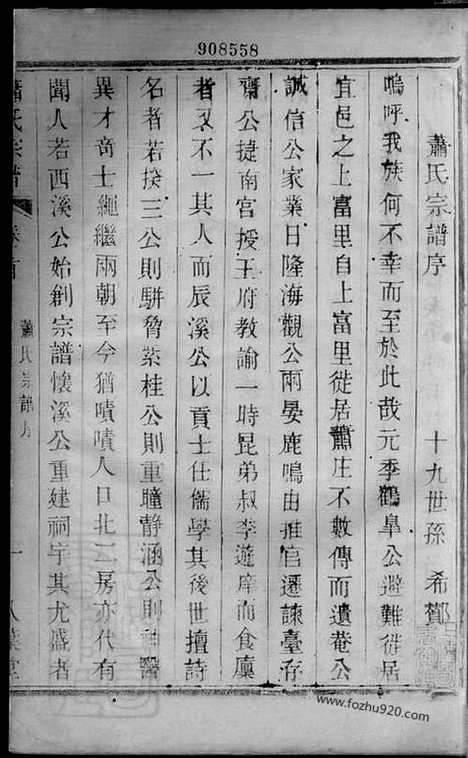 908558
蕭氏宗譜序
十九世孫 希賀
嗚呼我族何不幸而至於此哉元季鶴臯公避難徙居
宜邑之上富里自上富里徙居蕭庄不數傳而遺菴公
誠信公家業日隆海觀公兩晏鹿鳴由推官遷諫臺存
齋公捷南宮授王府教諭一時昆弟叔季遊庠而食廩
者又不一其人而辰溪公以貢士仕儒學其後世擅詩
名者若揆三公則駢脅蘂桂公則重瞳静涵公則神醫
異才竒士繩繼兩朝至今猶嘖嘖人口北二房亦代有
聞人若西溪公始創宗譜懷溪公重建祠宇其尤盛者
蕭氏宗譜 卷首 蕭氏宗譜序 一 八葉堂
www.fozhu920.com